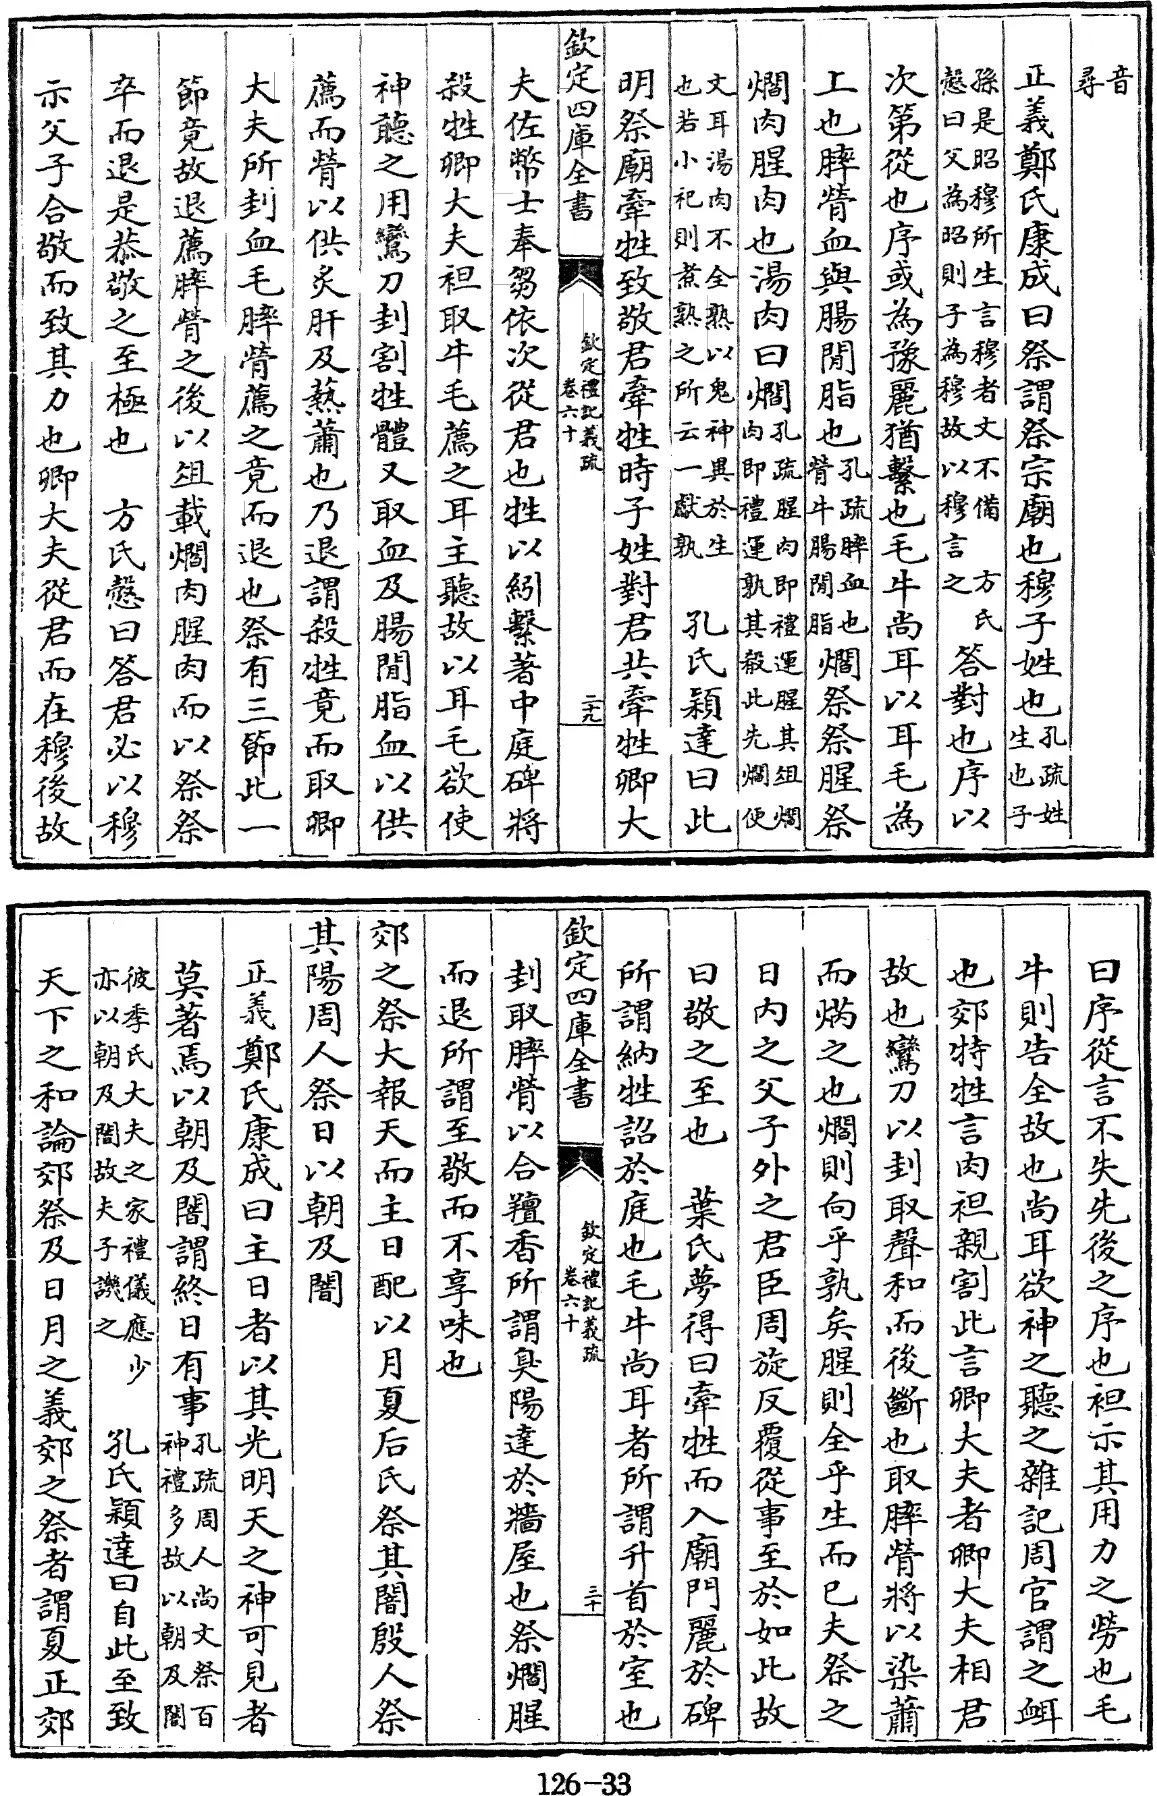 音
尋
正義鄭氏康成曰祭謂祭宗廟也穆子姓也
孔疏姓
生也子
孫是昭穆所生言穆者文不備
方氏
慤曰父為昭則子為穆故以穆言之
答對也序以
次第從也序或為豫麗猶繫也毛牛尚耳以耳毛為
上也膟膋血與腸閒脂也
孔疏膟血也
膋牛腸閒脂
爓祭祭腥祭
爓肉腥肉也湯肉曰爓
孔疏腥肉即禮運腥其俎爓
肉即禮運孰其殽此先爓便
文耳湯肉不全熟以鬼神異於生
也若小祀則煮熟之所云一獻孰
孔氏穎達曰此
明祭廟牽牲致敬君牽牲時子姓對君共牽牲卿大
欽定四庫全書
欽定禮記義疏
卷六十
二十九
夫佐幣士奉芻依次從君也牲以紖繫著中庭碑將
殺牲卿大夫袒取牛毛薦之耳主聽故以耳毛欲使
神聽之用鸞刀刲割牲體又取血及腸閒脂血以供
薦而膋以供炙肝及爇蕭也乃退謂殺牲竟而取卿
大夫所刲血毛膟膋薦之竟而退也祭有三節此一
節竟故退薦膟膋之後以俎載爓肉腥肉而以祭祭
卒而退是恭敬之至極也
方氏慤曰答君必以穆
示父子合敬而致其力也卿大夫從君而在穆後故
曰序從言不失先後之序也袒示其用力之勞也毛
牛則告全故也尚耳欲神之聽之雜記周官謂之衈
也郊特牲言肉袒親割此言卿大夫者卿大夫相君
故也鸞刀以刲取聲和而後斷也取膟膋將以染蕭
而焫之也爓則向乎孰矣腥則全乎生而已夫祭之
日内之父子外之君臣周旋反覆從事至於如此故
曰敬之至也
葉氏夢得曰牽牲而入廟門麗於碑
所謂納牲詔於庭也毛牛尚耳者所謂升首於室也
欽定四庫全書
欽定禮記義疏
卷六十
三十
刲取膟膋以合羶香所謂臭陽達於牆屋也祭爓腥
而退所謂至敬而不享味也
郊之祭大報天而主日配以月夏后氏祭其闇殷人祭
其陽周人祭日以朝及闇
正義鄭氏康成曰主日者以其光明天之神可見者
莫著焉以朝及闇謂終日有事
孔疏周人尚文祭百
神禮多故以朝及闇
彼季氏大夫之家禮儀應少
亦以朝及闇故夫子譏之
孔氏穎達曰自此至致
天下之和論郊祭及日月之義郊之祭者謂夏正郊
126-33